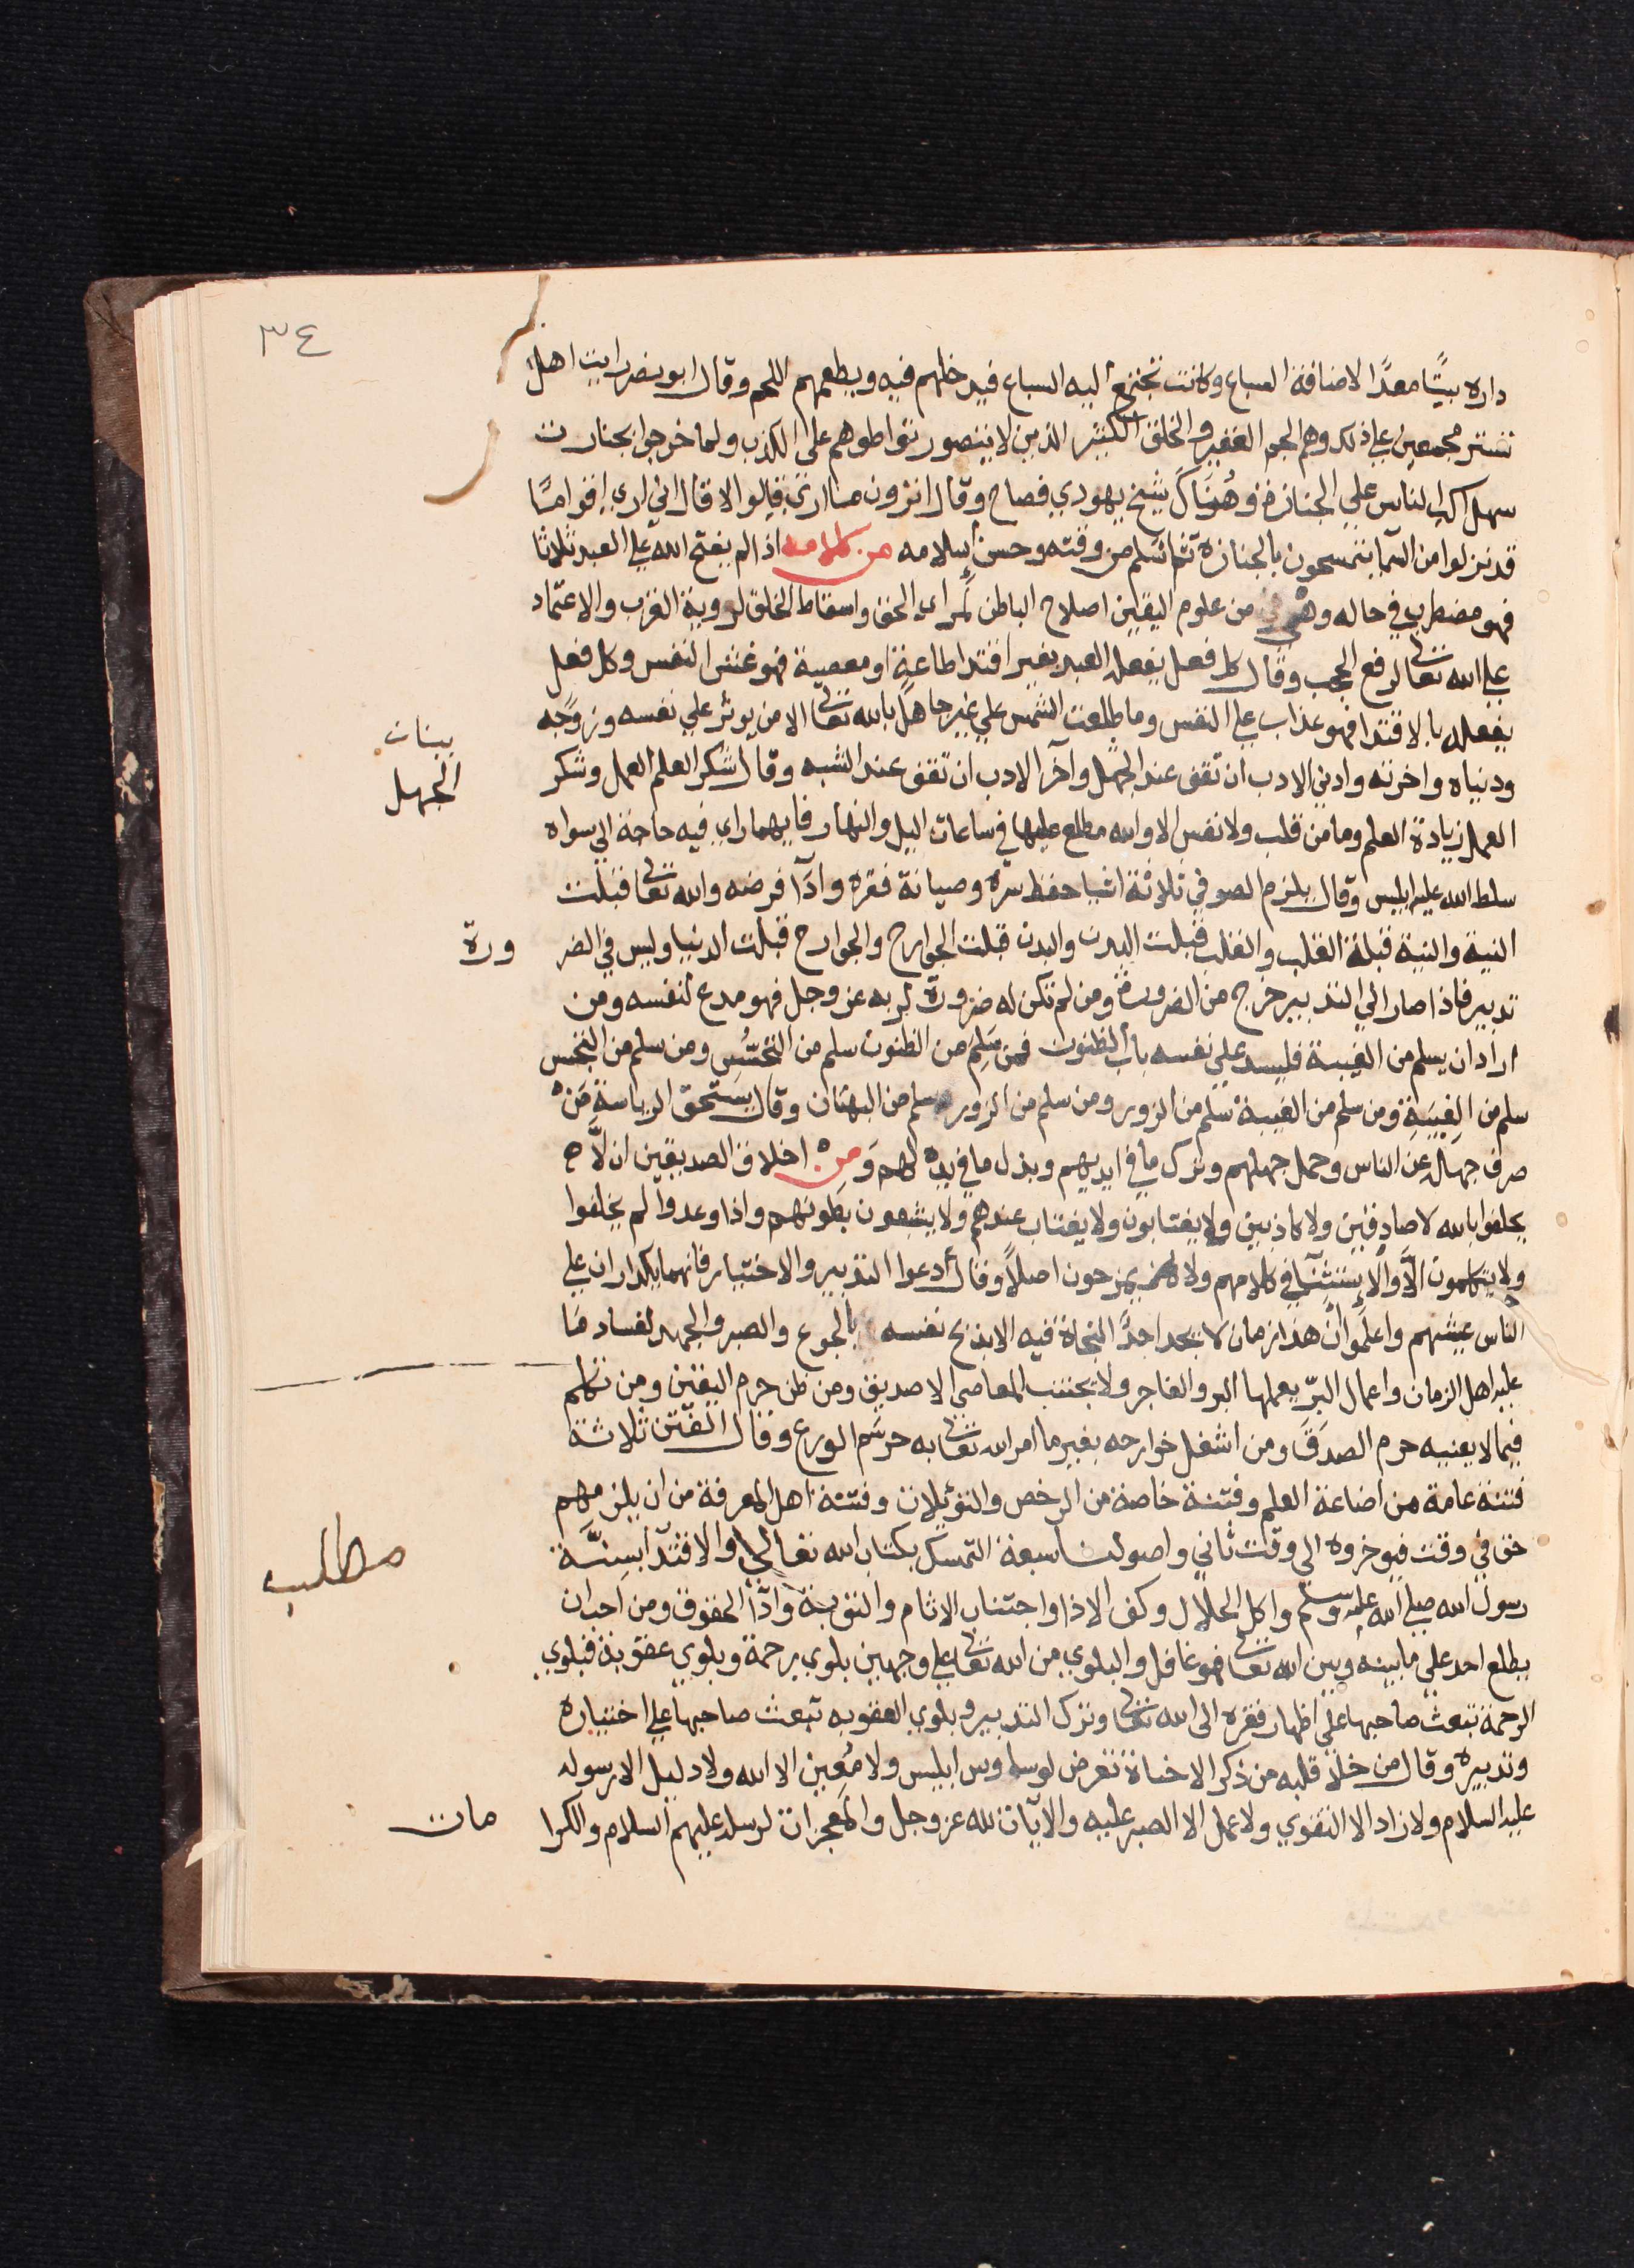 ٣٤
داره بيتًا معدًا لاضافة السباع وكانت تجتمع اليه السباع فيدخلهم فيه ويطعمهم اللحم وقال ابو نصر رايت اهل
تستر مجمعين علي ذلك وهم الجم الغفير والخلق الكثير الذين لا يتصور تواطوهم على الكذب ولما خرجوا بجنازت
سهل اكب الناس علي الجنازة وهناك شيخ يهودي فصاح وقال اترون ما اري قالوا لا قال اني اري اقوامًا
قد نزلوا من السما يتمسحون بالجنازة ثم اسلم من وقته وحسن اسلامه من كلامه اذا لم يفتح الله علي العبد ثلاثا
فهو مضطرب في حاله وهي من علوم اليقين اصلاح الباطن لمراي الحق واسقاط الخلق لروية القرب والاعتماد
علي الله تعالى لرفع الحجب وقال كل فعل يفعله العبد بغير اقتدا طاعة او معصية فهو عيش النفس وكل فعل
يفعله بالاقتدا فهو عذاب علي النفس وما طلعت الشمس علي غير جاهل بالله تعالى الا من يوثر علي نفسه وزوجه
ودنياه واخرته وادني الادب ان تقف عند الجهل وآخر الادب ان تقف عند الشبه وقال شكر العلم العمل وشكر
بينات
الجهل
العمل زيادة العلم وما من قلب ولا نفس الا والله مطلع عليها في ساعات اليل والنهار فايهما راي فيه حاجة الي سواه
سلط الله عليه ابليس وقال يلزم الصوفي ثلاثة اشيا حفظ سره وصيانة فقره وادآ فرضه والله تعالى قبلت
النية والنية قبلة القلب والقلب قبلت البدن والبدن قبلت الجوارح والجوارح قبلت الدنيا وليس في الضر
ورة
تدبير فاذا صار الي التدبير خرج من الضرورة ومن لم تكن له ضرورة لربه عز وجل فهو مدع لنفسه ومن
اراد ان يسلم من الغيبة فليسد علي نفسه باب الظنون فمن سلم من الظنون سلم من التجسس ومن سلم من التجسس
سلم من الغيبة ومن سلم من الغيبة سلم من الزور ومن سلم من الزور سلم من البهتان وقال يستحق الرياسة من
صرف جهاله عن الناس وحمل جهلهم وترك ما في ايديهم وبذل ما في يده لهم ومن اخلاق الصديقين ان لا
يحلفوا بالله لا صادقين ولا كاذبين ولا يغتابون ولا يغتاب عندهم ولا يشبعون بطونهم واذا وعدوا لم يخلفوا
ولا يتكلمون الا والاستثنآ في كلامهم ولا يمزحون اصلاً وقال ادعوا التدبير والاختيار فانهما يكدران علي
الناس عيشهم واعلموا ان هذا زمان لا يجد احدًا النجاة فيه الا بذبح نفسه بالجوع والصبر والجهد لفساد ما
عليه اهل الزمان واعمال البر يعملها البر والفاجر ولا يجتنب المعاصي الا صديق ومن ظن حرم اليقين ومن تكلم
فيما لا يعنيه حرم الصدق ومن اشغل جوارحه بغير ما امر الله تعالى به حرم الورع وقال الفتن ثلاثة
فتنة عامة من اضاعة العلم وفتنة خاصة من الرخص والتؤيلات وفتنة اهل المعرفة من ان يلزمهم
حق في وقت فيوخروه الي وقت ثاني واصولنا سبعة التمسك بكتاب الله تعالى والاقتدآ بسنة
مطلب
رسول الله صلي الله عليه وسلم واكل الحلال وكف الاذا واجتناب الاثام والتوبة وادآ الحقوق ومن احب ان
يطلع احد علي ما بينه وبين الله تعالى فهو غافل والبلوي من الله تعالى علي وجهين بلوي رحمة وبلوي عقوبة فبلوي
الرحمة تبعث صاحبها علي اظهار فقره الى الله تعالى وترك التدبير وبلوي العقوبه تبعث صاحبها علي اختياره
وتدبيره وقال من خلا قلبه من ذكر الاخرة تعرض لوساوس ابليس ولا معين الا الله ولا دليل الا رسوله
عليه السلام ولا زاد الا التقوي ولا عمل الا الصبر عليه والايات لله عز وجل والمعجزات لرسله عليهم السلام والكرا
مات